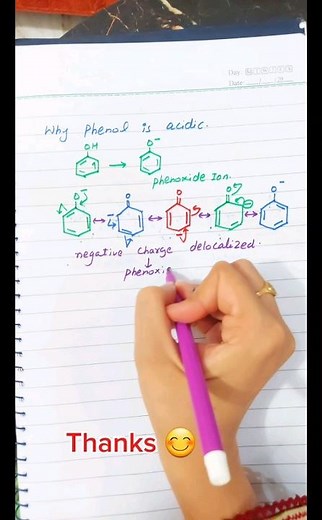 Day
Date
Why Phenol is acidic.
OH O⁻
phenoxide Ion.
O⁻ O O O O⁻
negative charge delocalized.
↓
phenoxi
Thanks 😊